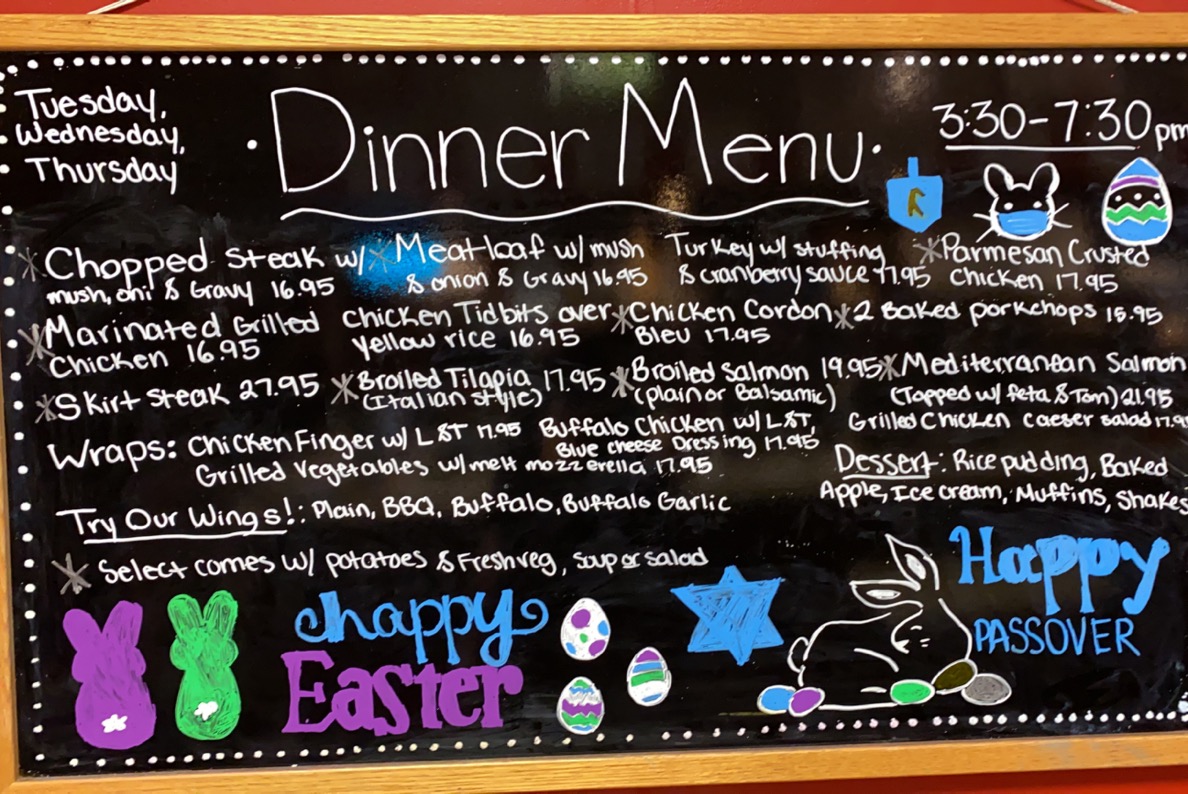 Tuesday,
Wednesday,
Thursday
Dinner Menu
3:30-7:30 pm
Chopped Steak w/
mush, oni & Gravy 16.95
Meatloaf w/ mush
& onion & Gravy 16.95
Turkey w/ stuffing
& cranberry sauce 17.95
Parmesan Crusted
Chicken 17.95
Marinated Grilled
Chicken 16.95
Chicken Tidbits over
Yellow rice 16.95
Chicken Cordon
Bleu 17.95
2 Baked porkchops 15.95
Skirt Steak 27.95
Broiled Tilapia 17.95
(Italian style)
Broiled Salmon 19.95
(plain or Balsamic)
Mediterranean Salmon
(Topped w/ feta & Tom) 21.95
Wraps: Chicken Finger w/ L&T 17.95
Buffalo Chicken w/ L&T,
Blue cheese Dressing 17.95
Grilled Chicken caeser salad 17.9
Grilled Vegetables w/ melt mozzerella 17.95
Dessert: Rice pudding, Baked
Apple, Ice cream, Muffins, Shakes
Try Our Wings!: Plain, BBQ, Buffalo, Buffalo Garlic
Select comes w/ potatoes & Fresh veg, soup or salad
Happy
Easter
Happy
PASSOVER